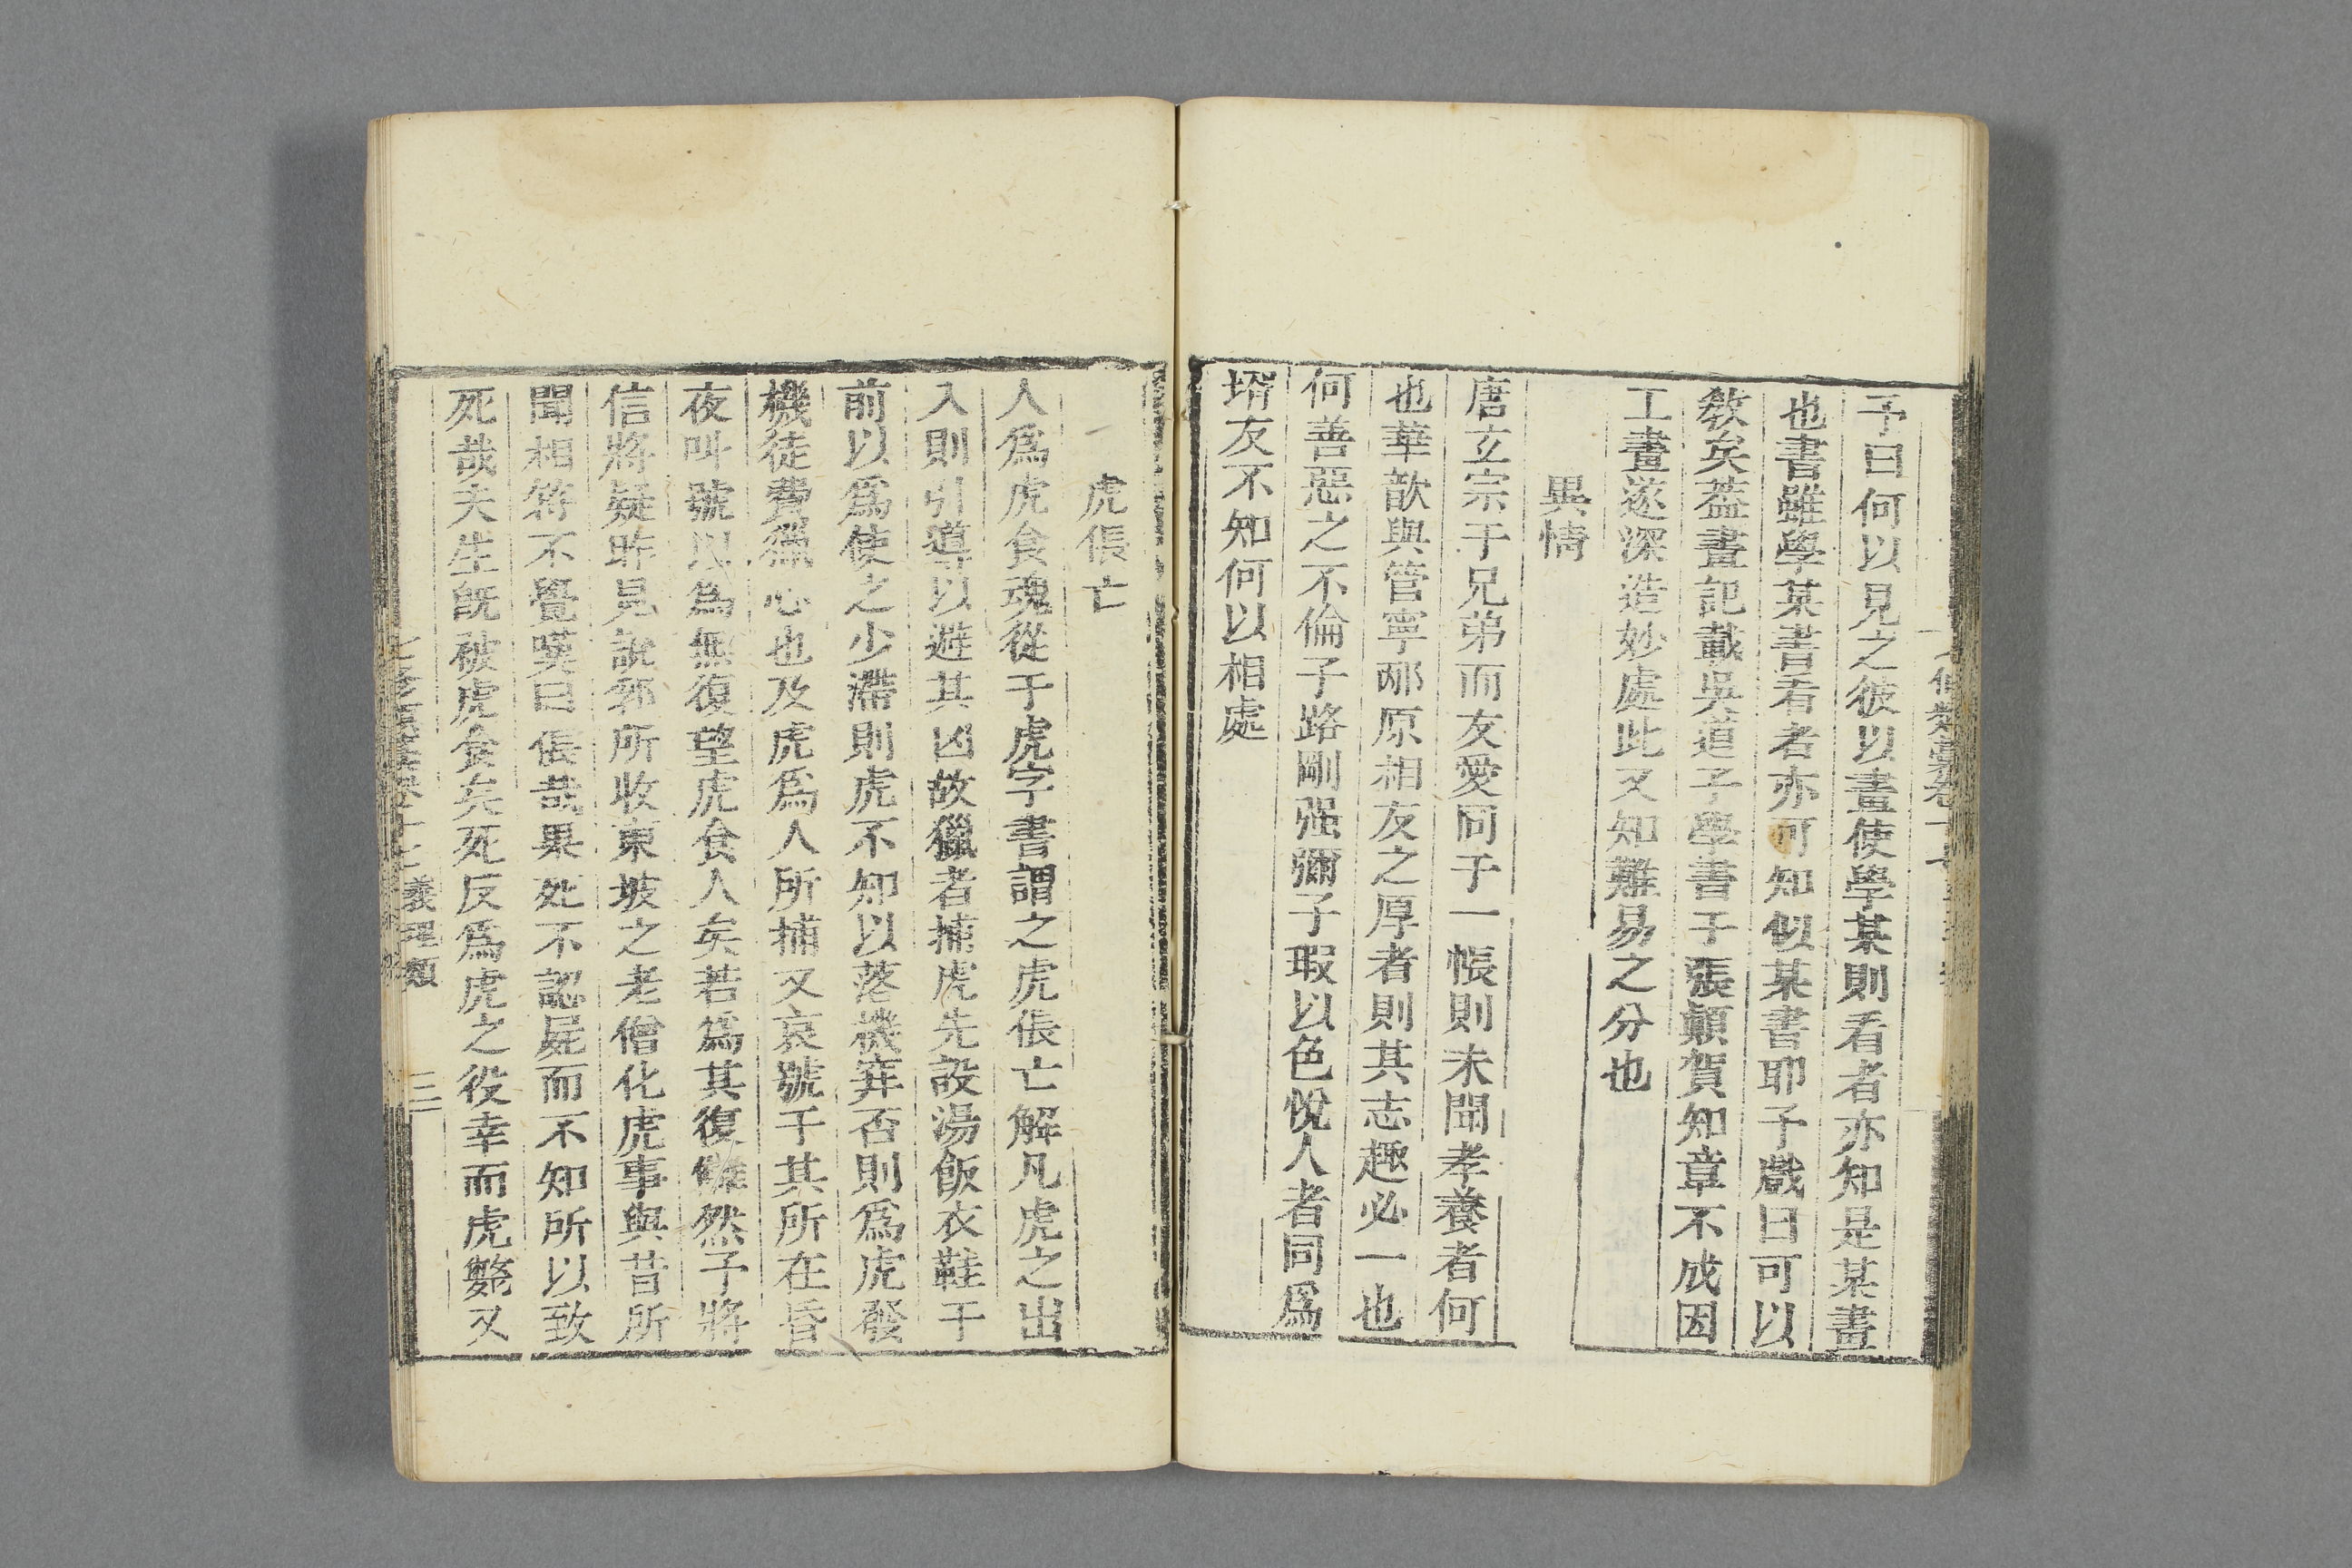 予曰何以見之彼以畫使學某則看者亦知是某畫
也書雖學某書看者亦可知似某書耶予戲曰可以
敎矣葢畫記載吳道子學書于張顛賀知章不成因
工畫遂深造妙處此又知難易之分也
異情
唐立宗于兄弟而友愛同于一帳則未聞孝養者何
也華歆與管寧邴原相友之厚者則其志趣必一也
何善惡之不倫子路剛强彌子瑕以色悅人者同爲
壻友不知何以相處
虎倀亡
人爲虎食魂從于虎字書謂之虎倀亡解凡虎之出
入則引導以避其凶故獵者捕虎先設湯飯衣鞋于
前以爲使之少滯則虎不知以落機穽否則爲虎發
機徒費獵心也及虎爲人所捕又哀號于其所在昏
夜叫號以爲無復望虎食人矣若爲其復讎然予將
信將疑昨見說郛所收東坡之老僧化虎事與昔所
聞相符不覺嘆曰倀哉果死不認屍而不知所以致
死哉夫生旣被虎食矣死反爲虎之役幸而虎斃又
七修類稾卷十七 義理類 三